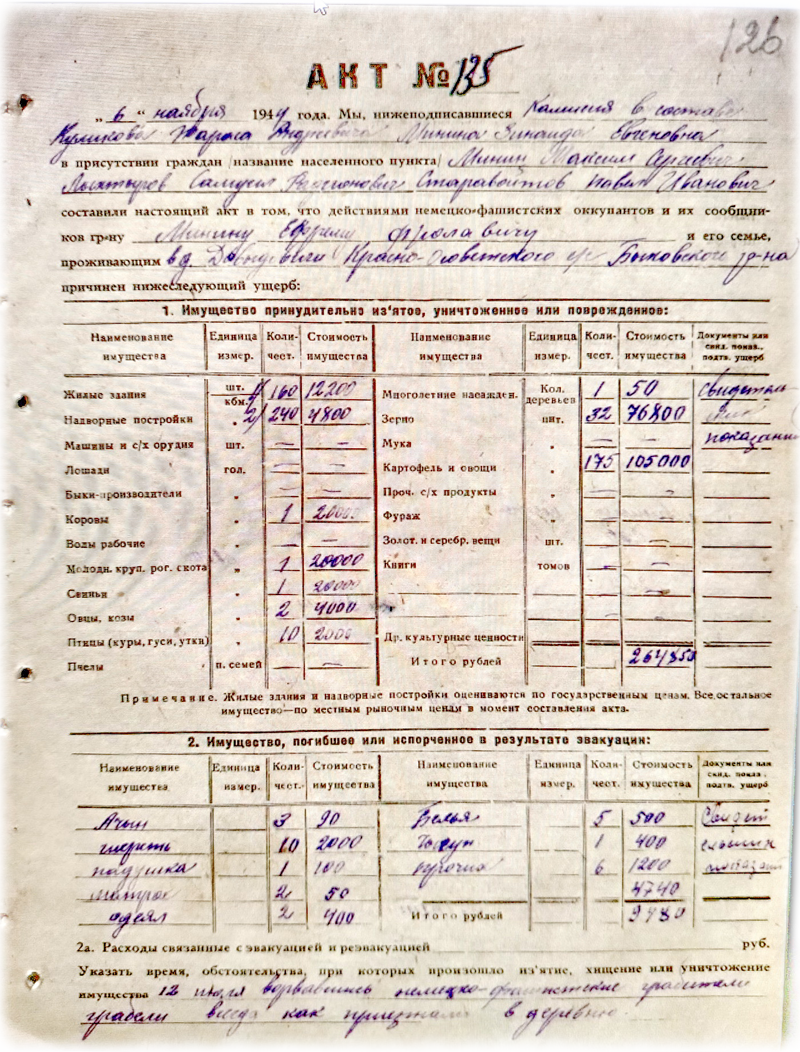 126
АКТ № 135
„ 6 " ноября 1944 года. Мы, нижеподписавшиеся Комисия в составе
Куликова Тараса Минина Зинаида Евгеновна
в присутствии граждан /название населенного пункта/ Минин Максим Сергеевич
Самуил Старавойтов Павел Иванович
составили настоящий акт в том, что действиями немецко-фашистских оккупантов и их сообщни-
ков гр-ну Минину Ефрему Фролавичу и его семье,
проживающим в д. Красно- Быховского р-на
причинен нижеследующий ущерб:
1. Имущество принудительно из'ятое, уничтоженное или поврежденное:
Наименование имущества Единица измер. Коли-чест. Стоимость имущества Наименование имущества Единица измер. Коли-чест. Стоимость имущества Документы или свид. показ., подтв. ущерб
Жилые здания шт. кбм. 1/ 160 12200 Многолетние насажден. Кол. деревьев 1 50 Свидетель-
Надворные постройки „ 2/ 240 4800 Зерно цнт. 32 76800
Машины и с/х орудия шт. — — Мука „ — — показани
Лошади гол. — — Картофель и овощи „ 175 105000
Быки-производители „ — — Проч. с/х продукты „ — —
Коровы „ 1 20000 Фураж „ — —
Волы рабочие „ — — Золот. и серебр. вещи шт. — —
Молодн. круп. рог. скота „ 1 20000 Книги томов — —
Свиньи „ 1 20000
Овцы, козы „ 2 4000
Птицы (куры, гуси, утки) „ 10 2000 Др. культурные ценности
Пчелы п. семей — — Итого рублей 264850
Примечание. Жилые здания и надворные постройки оцениваются по государственным ценам. Все остальное
имущество—по местным рыночным ценам в момент составления акта.
2. Имущество, погибшее или испорченное в результате эвакуации:
Наименование имущества Единица измер. Коли-чест. Стоимость имущества Наименование имущества Единица измер. Коли-чест. Стоимость имущества Документы или свид. показ. подтв. ущерб
3 90 Белья 5 500 Свидет
10 2000 1 400
подушка 1 100 прочие 6 1200 показани
матрос 2 50 4740
одеял 2 400 Итого рублей 9480
2а. Расходы связанные с эвакуацией и реэвакуацией руб.
Указать время, обстоятельства, при которых произошло из'ятие, хищение или уничтожение
имущества 12 июля ворвавшись немецко-фашистские грабители
грабели всегда как приезжали в деревню